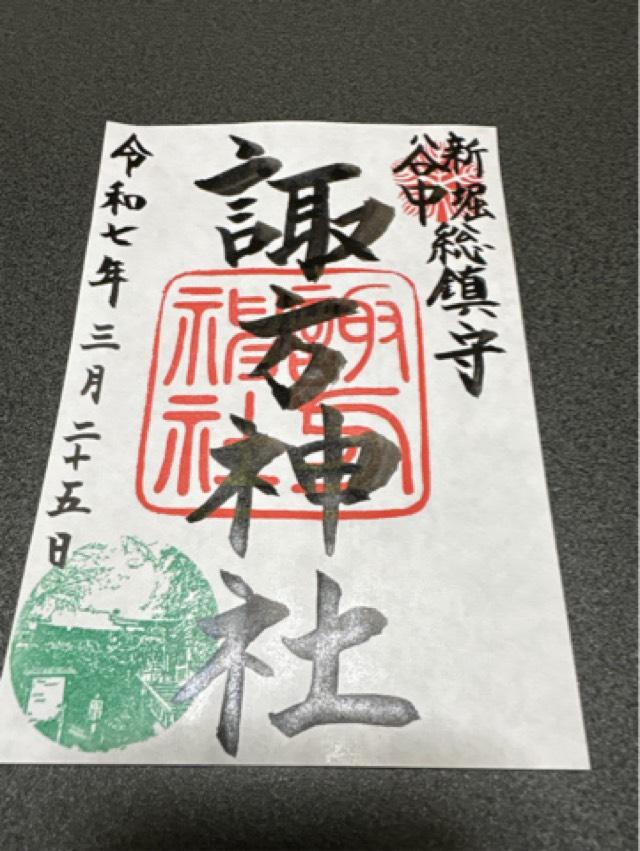 新堀
谷中
総鎮守
諏方神社
諏方神社
令和七年三月二十五日